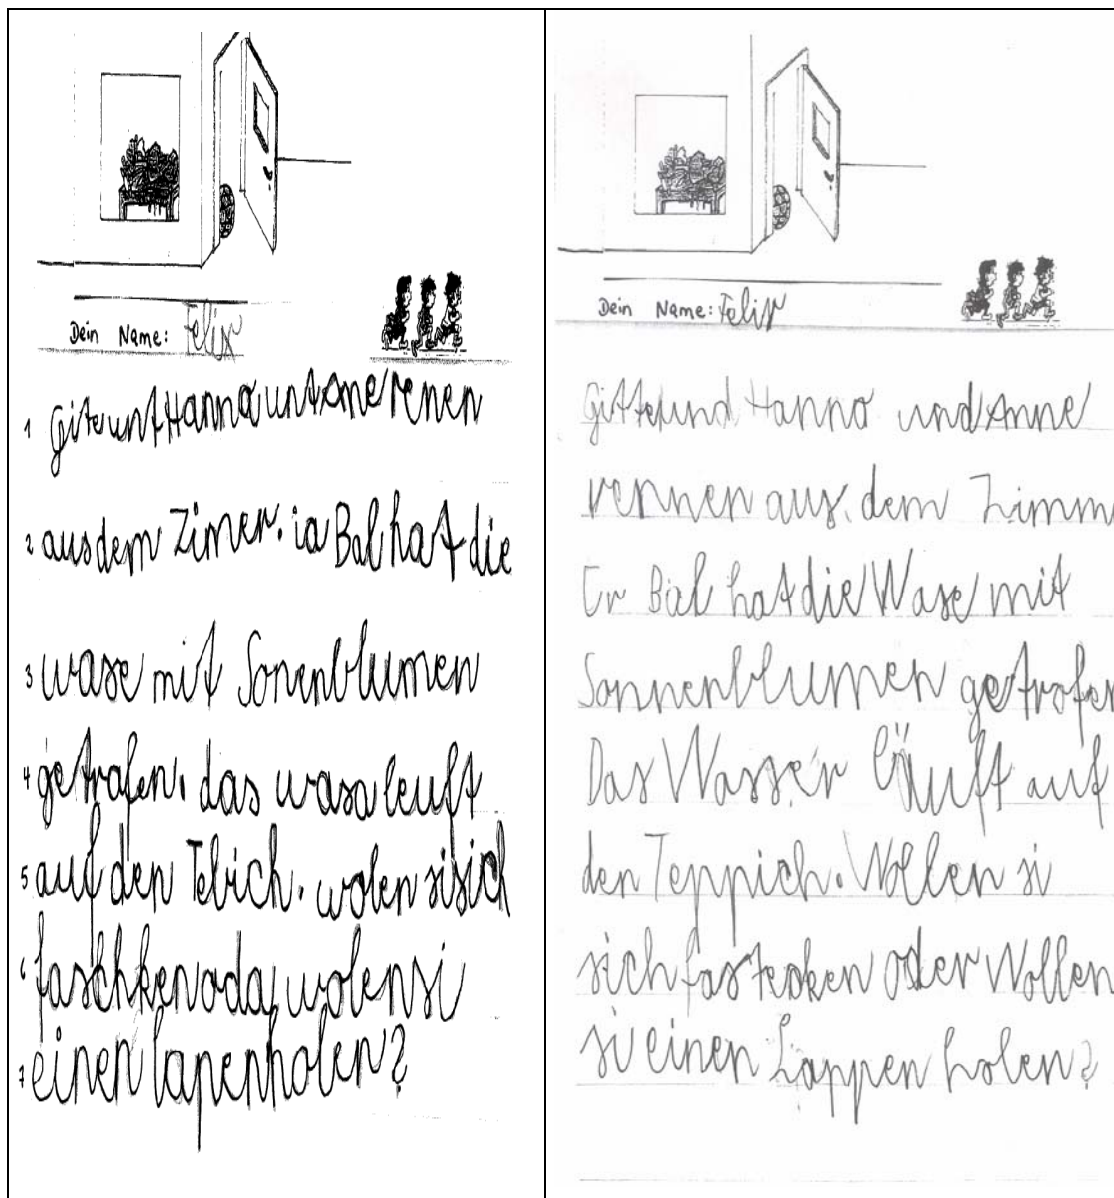 Dein Name: Felix
1 Giteunt Hanna unt Ane renen
2 aus dem Zimer. ia Bal hat die
3 wase mit Sonenblumen
4 getrafen. das wasa leuft
5 auf den Tebich. wolen si sich
6 faschken oda wolen si
7 einen lapen holen?
Dein Name: Felix
Gitte und Hanna und Anne
rennen aus dem Zimm
Er Bal hat die Wase mit
Sonnenblumen getrofen
Das Wasser läuft auf
den Teppich. Wollen si
sich fastecken oder Wollen
si einen Lappen holen?